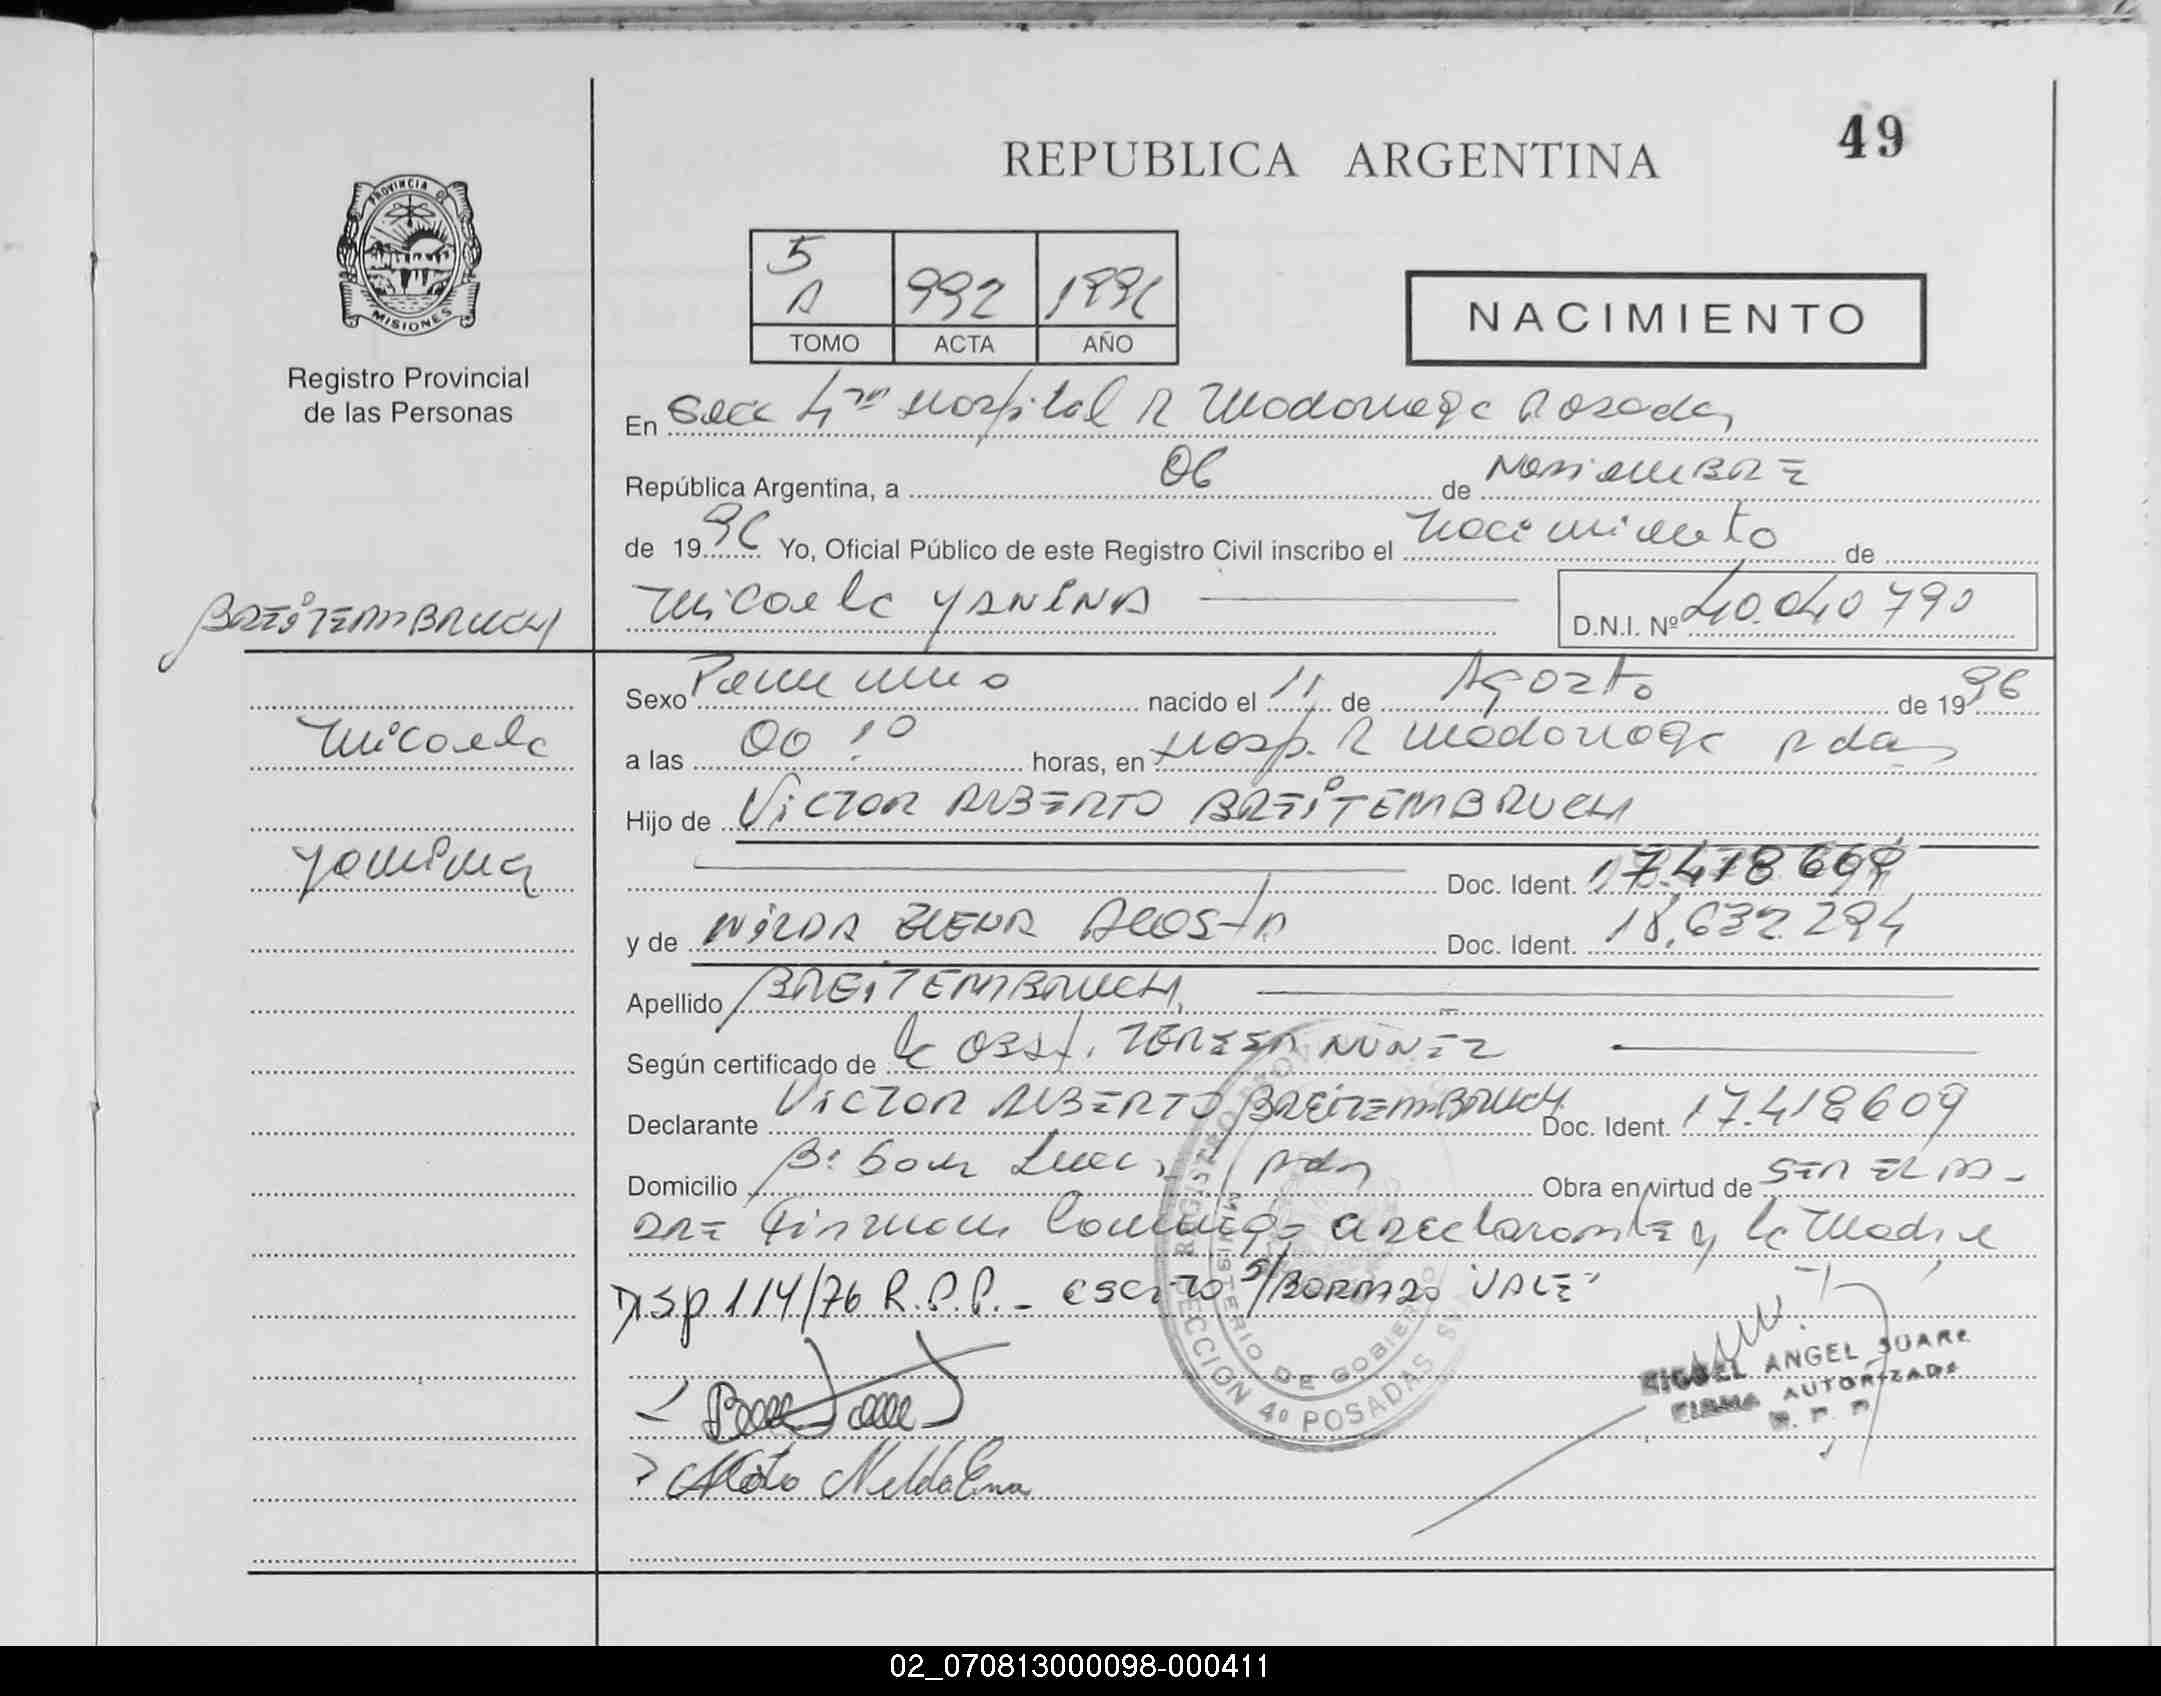 49
REPUBLICA ARGENTINA
PROVINCIA DE
MISIONES
Registro Provincial
de las Personas
5
A 992 1996
TOMO ACTA AÑO
NACIMIENTO
En Secc 4ta Hospital R Madariaga Posadas
República Argentina, a 06 de NOVIEMBRE
de 1996 Yo, Oficial Público de este Registro Civil inscribo el nacimiento de
Micaela YANINA D.N.I. Nº 40.040790
BREITEMBRUCH
Micaela
Yanina
Sexo Femenino nacido el 11 de Agosto de 1996
a las 00 10 horas, en Hosp. R Madariaga Pdas
Hijo de VICTOR ALBERTO BREITEMBRUCH
Doc. Ident. 17.418 609
y de NILDA ELENA ACOSTA Doc. Ident. 18.632.294
Apellido BREITEMBRUCH
Según certificado de la OBST. TERESA NUÑEZ
Declarante VICTOR ALBERTO BREITEMBRUCH Doc. Ident. 17.418609
Domicilio Bº San Pdas Obra en virtud de SER EL PA-
DRE Firman conmigo declarante y la Madre
Disp 114/76 R.P.P. - escrito s/BORRADO "VALE"
REGISTRO
MINISTERIO DE GOBIERNO
SECCION 4º POSADAS
MIGUEL ANGEL SUARE
FIRMA AUTORIZADA
R. P. P.
02_070813000098-000411